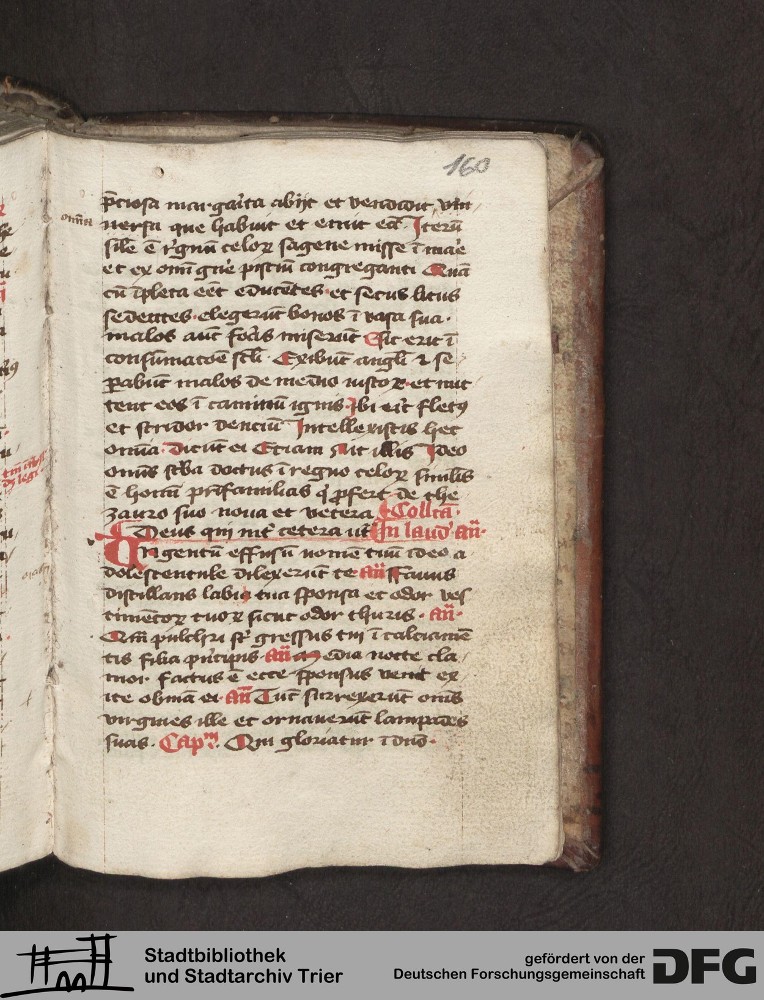 160
p̄ciosa margarita abijt et vendidit vni
uersa que habuit et emit eā Iterū
sile ē r̓gnū celoꝝ sagene misse ī mar̓e
et ex omī gn̓e pisciū congreganti Quā
cū īpleta eēt educētes et secus litus
sedentes elegerūt bonos ī vasa sua
malos aūt foras miserūt Sic erit ī
consūmatōe scl̄i Exibūt angl̄i ⁊ se
ꝑabūt malos de medio iustoꝝ et mit
tent eos ī caminū ignis Ibi erit fletꝰ
et stridor denciū Intellexistis hec
omīa Dicūt ei Etiam Ait illis Ideo
omīs sc̓ba doctus ī regno celoꝝ similis
ē homī pr̄ifamilias q̓ ꝓfert de the
zauro suo noua et vetera Collcā
Deus qui int̓ cetera ut In laud̓ an̄
Vngentū effusū nomē tuū ideo a
dolescentule dilexerūt te an̄ Fauus
distillans labia tua sponsa et odor ves
timētoꝝ tuoꝝ sicut odor thuris an̄
Qm̄ pulchri st̄ gressus tui ī calciamē
tis filia pn̓cipis an̄ Media nocte cla
mor factus ē ecce sponsus venit ex
ite obuiā ei an̄ Tūc surrexerūt om̄s
virgines ille et ornauerūt lampades
suas Capm̄ Qui gloriatur ī dn̄o
Stadtbibliothek
und Stadtarchiv Trier
gefördert von der
Deutschen Forschungsgemeinschaft
DFG